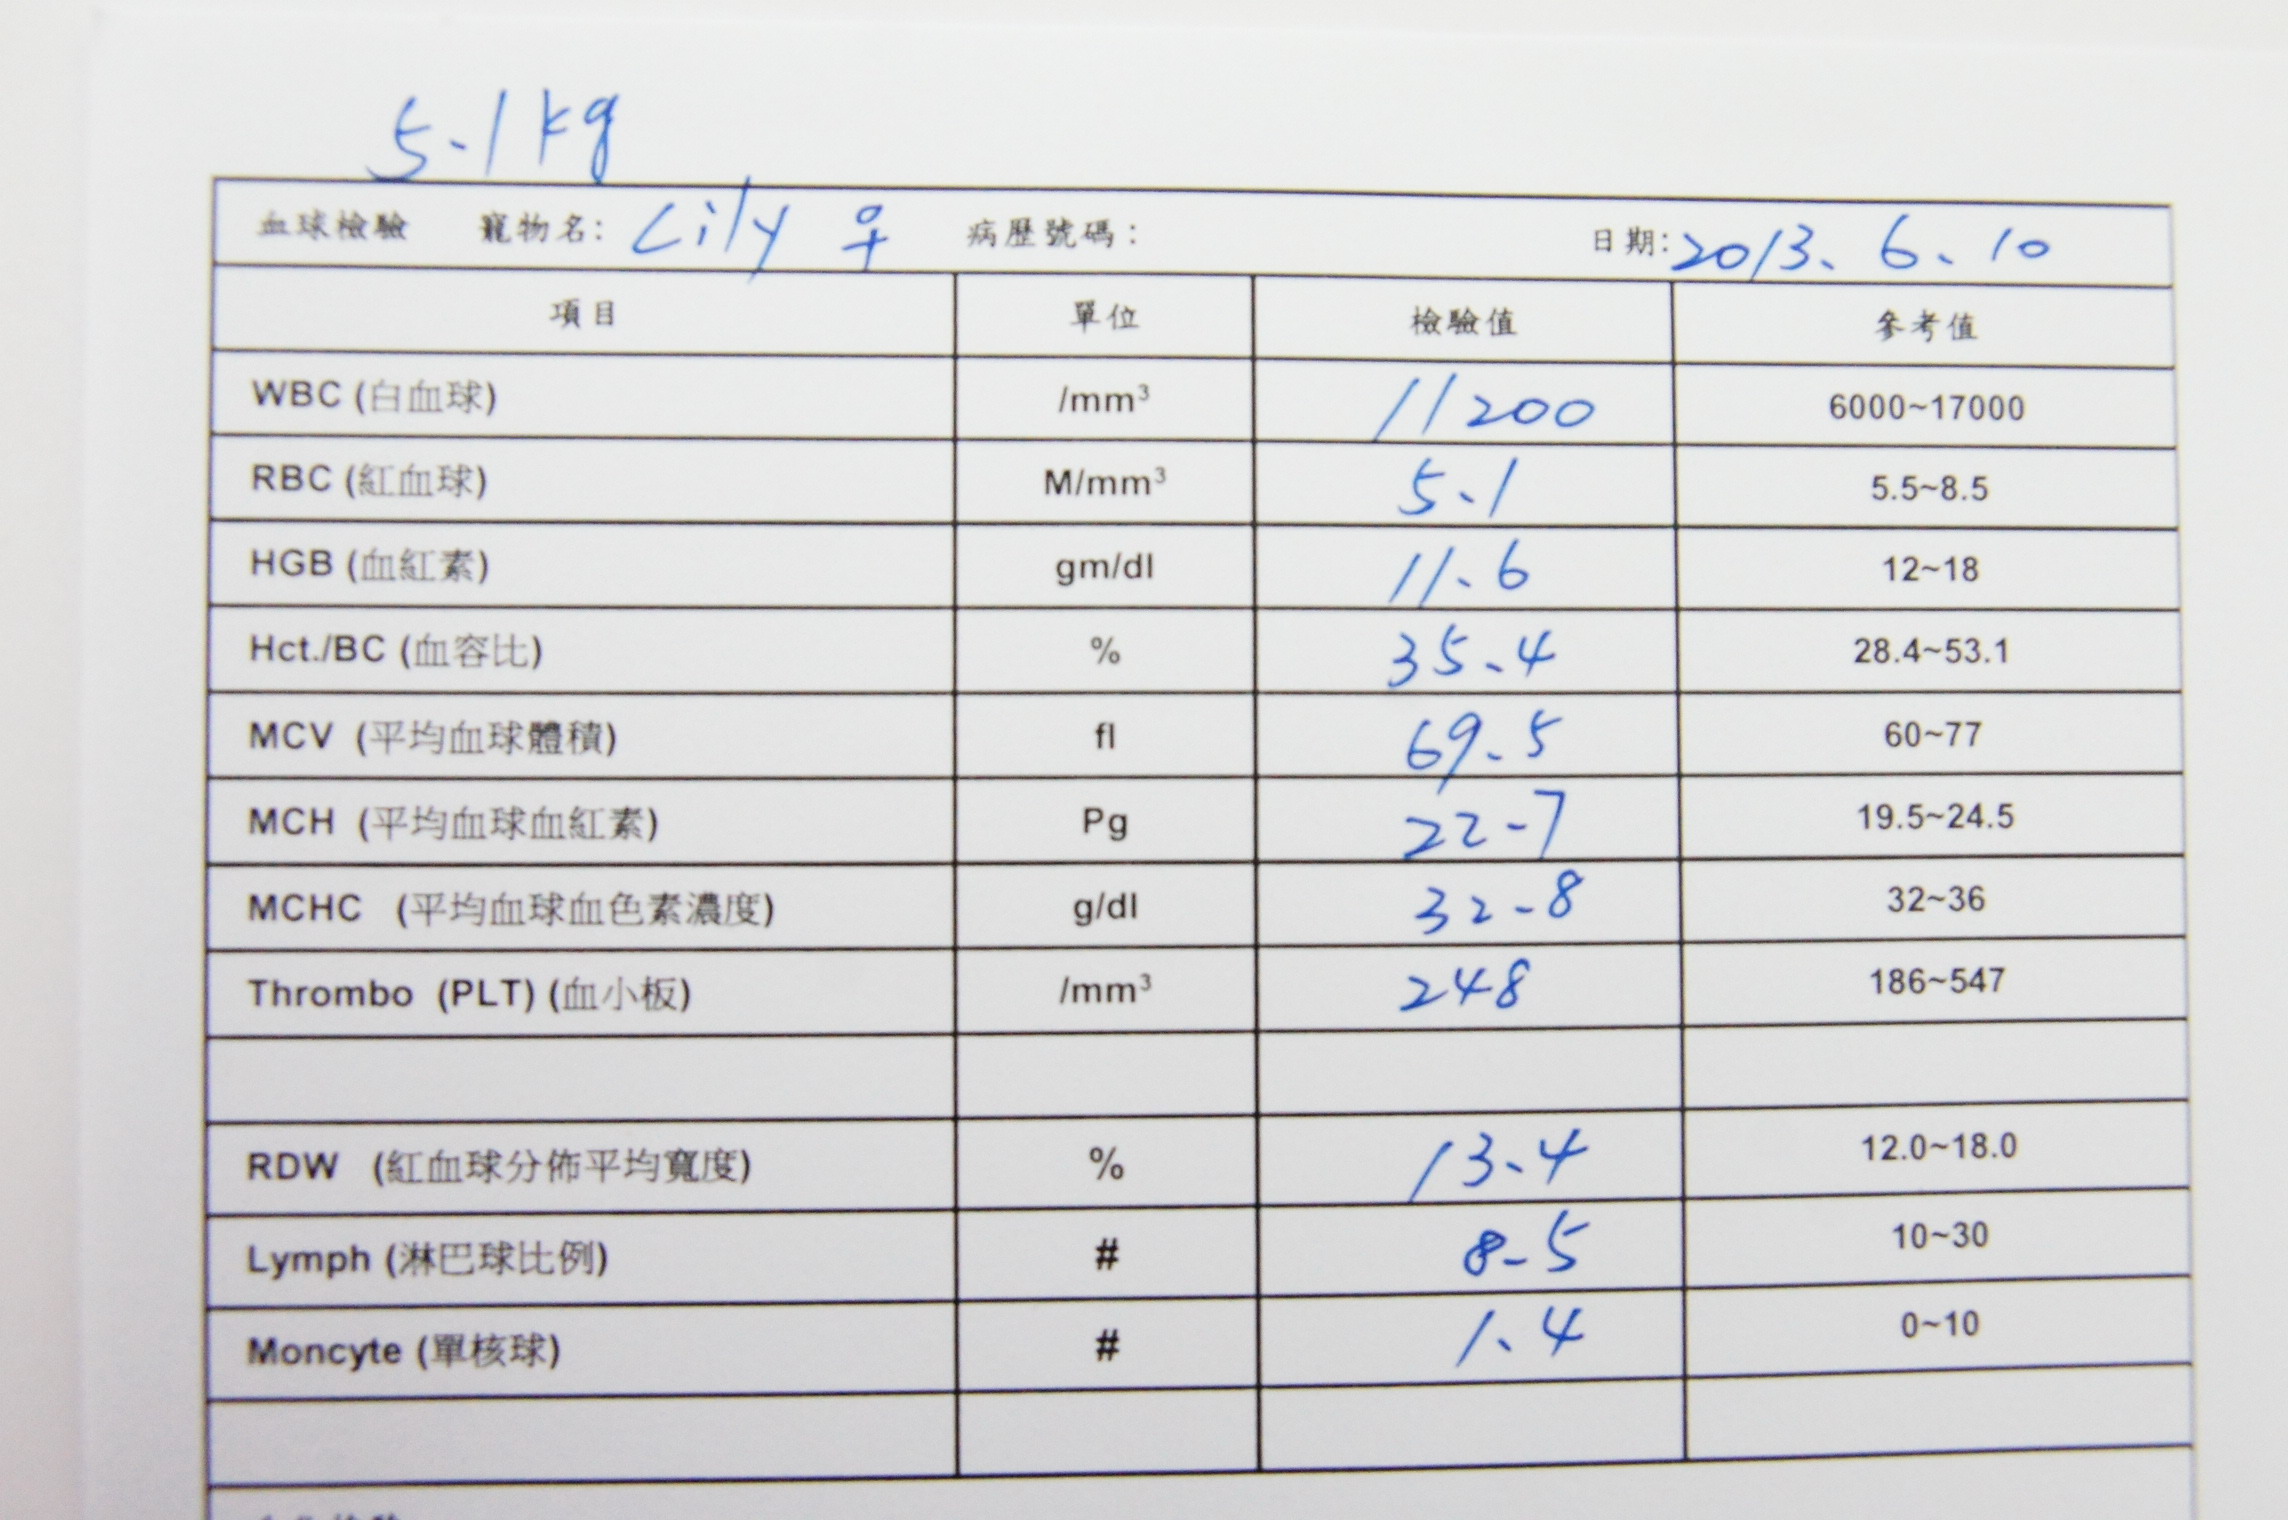 5.1 kg
血球檢驗 寵物名: Lily ♀ 病歷號碼: 日期: 2013.6.10
項目 單位 檢驗值 參考值
WBC (白血球) /mm³ 11200 6000~17000
RBC (紅血球) M/mm³ 5.1 5.5~8.5
HGB (血紅素) gm/dl 11.6 12~18
Hct./BC (血容比) % 35.4 28.4~53.1
MCV (平均血球體積) fl 69.5 60~77
MCH (平均血球血紅素) Pg 22.7 19.5~24.5
MCHC (平均血球血色素濃度) g/dl 32.8 32~36
Thrombo (PLT) (血小板) /mm³ 248 186~547
RDW (紅血球分佈平均寬度) % 13.4 12.0~18.0
Lymph (淋巴球比例) # 8.5 10~30
Moncyte (單核球) # 1.4 0~10